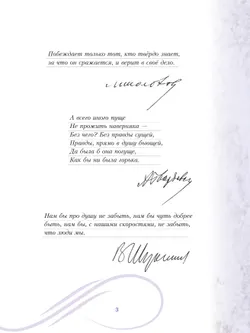 Побеждает только тот, кто твёрдо знает,
за что он сражается, и верит в своё дело.
А всего иного пуще
Не прожить наверняка —
Без чего? Без правды сущей,
Правды, прямо в душу бьющей,
Да была б она погуще,
Как бы ни была горька.
Нам бы про душу не забыть, нам бы чуть добрее
быть, нам бы, с нашими скоростями, не забыть,
что люди мы.
В Шукшин
3